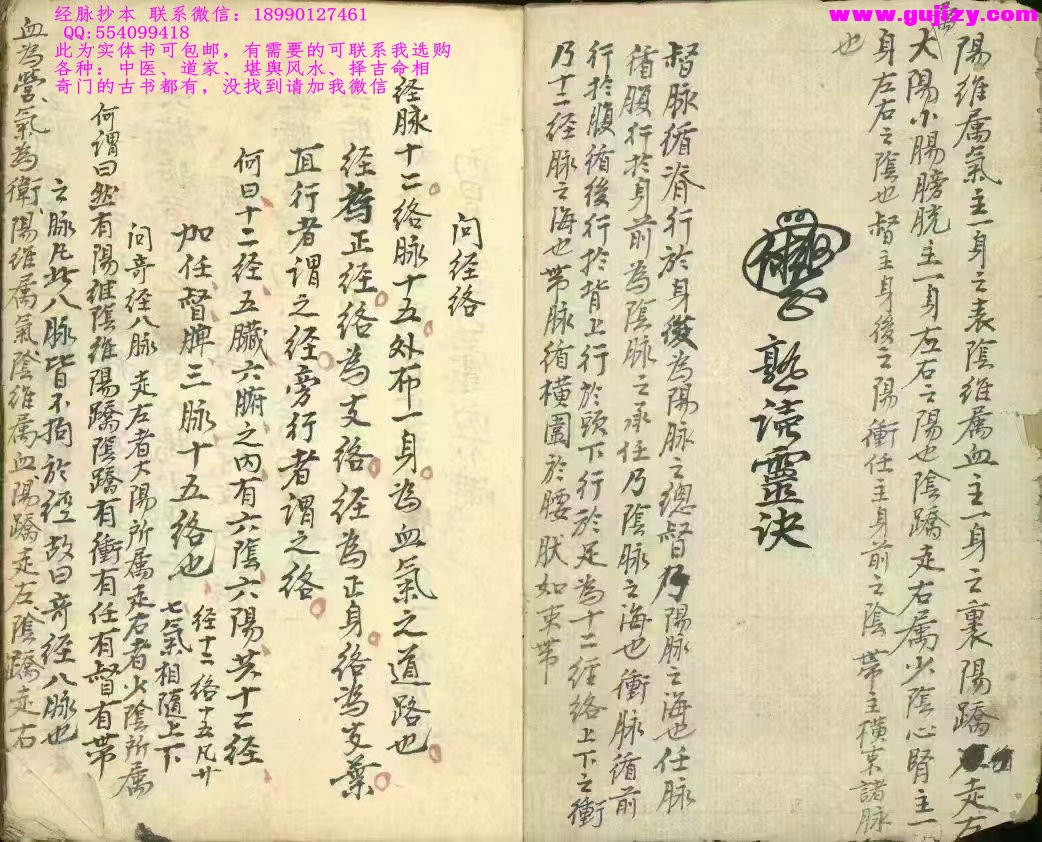 经脉抄本 联系微信：18990127461
QQ:554099418
此为实体书可包邮，有需要的可联系我选购
各种：中医、道家、堪舆风水、择吉命相
奇门的古书都有，没找到请加我微信
www.gujizy.com
陽維属氣主一身之表陰維属血主一身之裏陽蹻走左
太陽小腸膀胱主一身左右之陽也陰蹻走右属少陰心腎主一
身左右之陰也督主身後之陽衝任主身前之陰帶主橫束諸脉
也
熟读靈訣
督脉循脊行於身後為陽脉之總督乃陽脉之海也任脉
循腹行於身前為陰脉之承任乃陰脉之海也衝脉循前
行於腹循後行於背上行於頭下行於足為十二經絡上下之衝
乃十二经脉之海也帶脉循橫圍於腰狀如束帶
问经络
经脉十二络脉十五外布一身為血氣之道路也
经為正经络為支络经為正身络為支葉
直行者谓之经旁行者谓之络
何曰十二经五臟六腑之内有六陰六陽共十二经
加任督脾三脉十五络也
经十二络十五凡廿
七氣相随上下
问奇经八脉
走左者太陽所属走右者少陰所属
何谓曰然有陽維陰維陽蹻陰蹻有衝有任有督有帶
之脉凡此八脉皆不拘於經故曰奇经八脉也
血為營氣為衛陽維属氣陰維属血陽蹻走左陰蹻走右